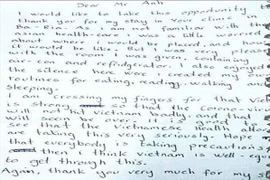 Dear Mr Anh
I would like to take this opportunity to
thank you for my stay in your clinic.
as I am not familiar with the
asian health care I was a little worried
about where I would be placed, and how
it would be like. I was very pleased
with the room I was given, containing
air-con and refridgerator. I also enjoyed
the silence here were I created my own
routines for eating, reading, walking and
sleeping.
I am crossing my fingers for that Viet
is strong so that the Corona
will not hit Vietnam badly, and that
will soon be over. it is good to
see that the Vietnamese health
are taking this very seriously. Hope
that everybody is taking precautions,
then I think Vietnam is well
to get through this.
Again, thank you very much for my